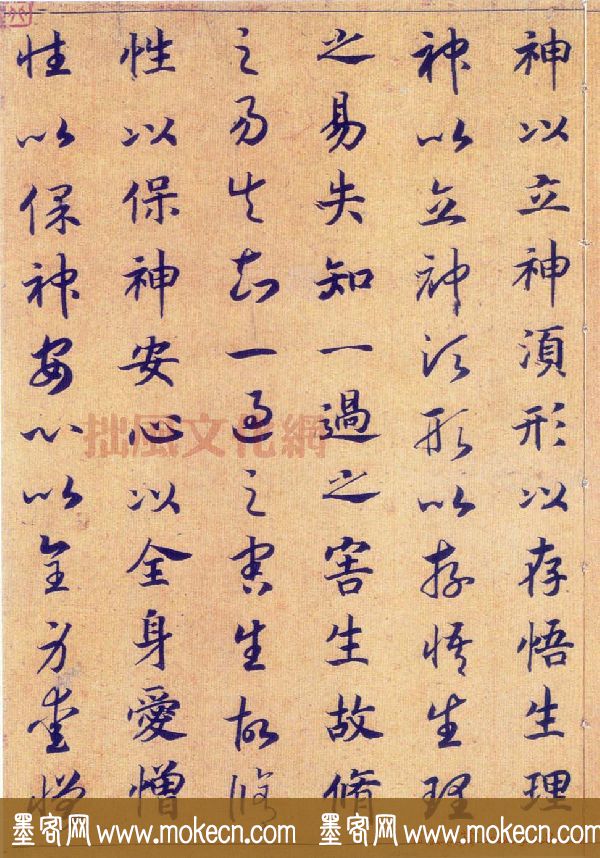 神以立神湏形以存悟生理
神以立神须形以存悟生理
之易失知一過之害生故脩
之易失知一過之害生故脩
性以保神安心以全身愛憎
性以保神安心以全身愛憎
拙風文化網
墨客网 www.mokecn.com 墨客网 www.mokecn.com